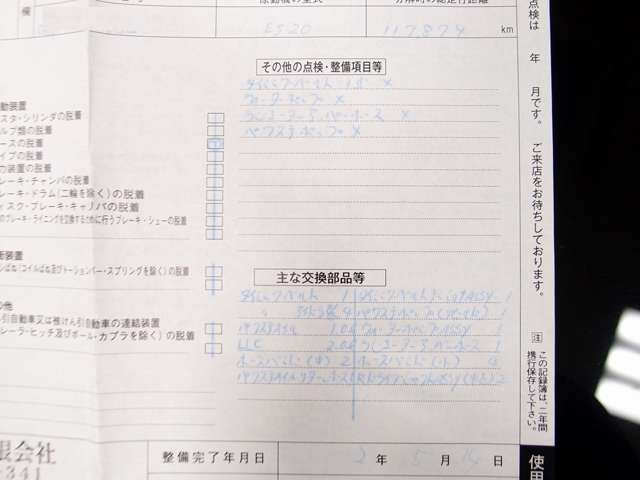 欄
原動機の型式
分解時の総走行距離
EJ20
117874 km
その他の点検・整備項目等
タイミングベルト ×
ウォーターポンプ ×
ラジエーターアッパーホース ×
パワステポンプ ×
動装置
スタ・シリンダの脱着
ルブ類の脱着
ースの脱着
イプの脱着
力装置の脱着
レーキ・チャンバの脱着
レーキ・ドラム(二輪を除く)の脱着
ィスク・ブレーキ・キャリパの脱着
のブレーキ・ライニングを交換するために行うブレーキ・シューの脱着
衝装置
シばね(コイルばね及びトーションバー・スプリングを除く)の脱着
の他
引自動車又は被けん引自動車の連結装置
レーラ・ヒッチ及びボール・カプラを除く)の脱着
主な交換部品等
タイミングベルト 1
パワスオイル 1.0
ウォーターポンプASSY 1
LLC 2.0
ラジエーターアッパーホース 1
ホースバンド(中) 2
ホースバンド(小) 4
限会社
-341
整備完了年月日 2 年 5 月 14 日
点検は 年 月です。ご来店をお待ちしております。
注 この記録簿は、二年間
携行保存して下さい。
使用